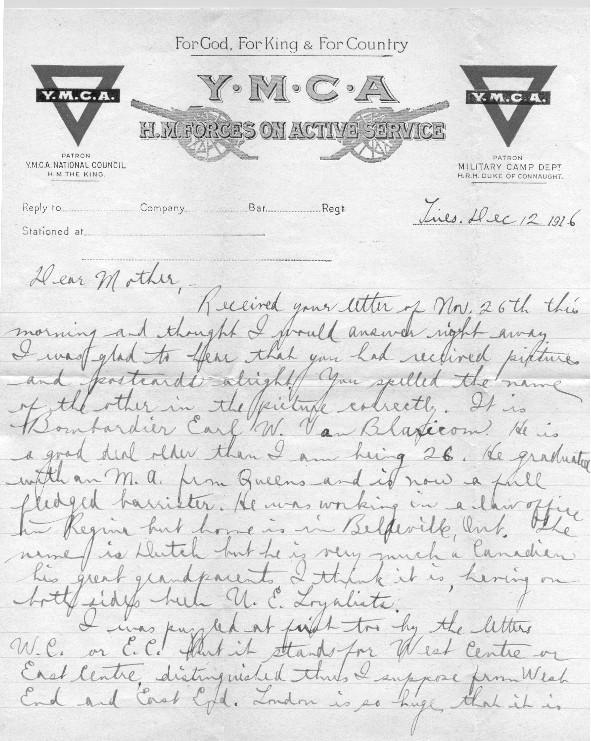 For God, For King & For Country
Y·M·C·A
H.M. FORCES ON ACTIVE SERVICE
Y.M.C.A.
PATRON
Y.M.C.A. NATIONAL COUNCIL
H.M. THE KING.
Y.M.C.A.
PATRON
MILITARY CAMP DEPT
H.R.H. DUKE OF CONNAUGHT.
Reply to Company Bat Regt
Stationed at
Tues. Dec 12 1916
Dear Mother,
Received your letter of Nov. 26th this
morning and thought I would answer right away
I was glad to hear that you had received pictures
and postcards alright. You spelled the name
of the other in the picture correctly. It is
Bombardier Earl W. Van Blaricom. He is
a good deal older than I am being 26. He graduated
with an M.A. from Queens and is now a full
fledged barrister. He was working in a law office
in Regina but home is in Belleville, Ont. The
name is Dutch but he is very much a Canadian
his great grandparents I think it is, having on
both sides been U. E. Loyalists.
I was puzzled at first too by the letters
W.C. or E.C. But it stands for West Centre or
East Centre, distinguished thus I suppose from West
End and East End. London is so huge that it is